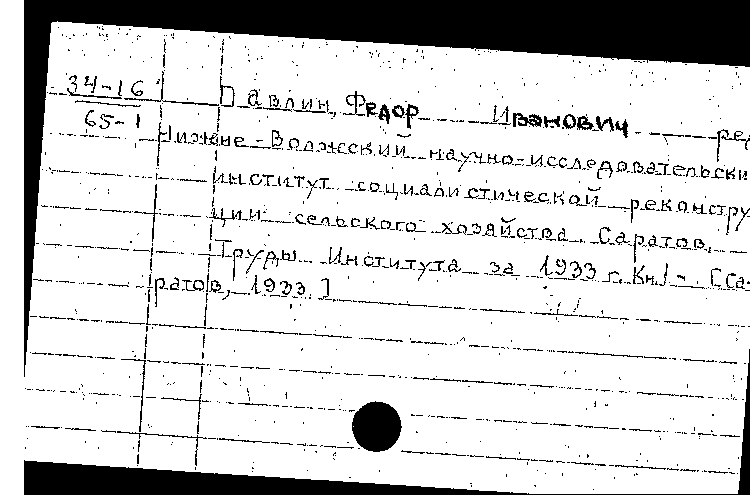 34-16
65-1
Павлин, Федор Иванович ред
Нижне-Волжский научно-исследовательски
институт социалистической реконстру
ции сельского хозяйства. Саратов.
Труды Института за 1933 г. Кн.1-. [Са-
ратов, 1933.]